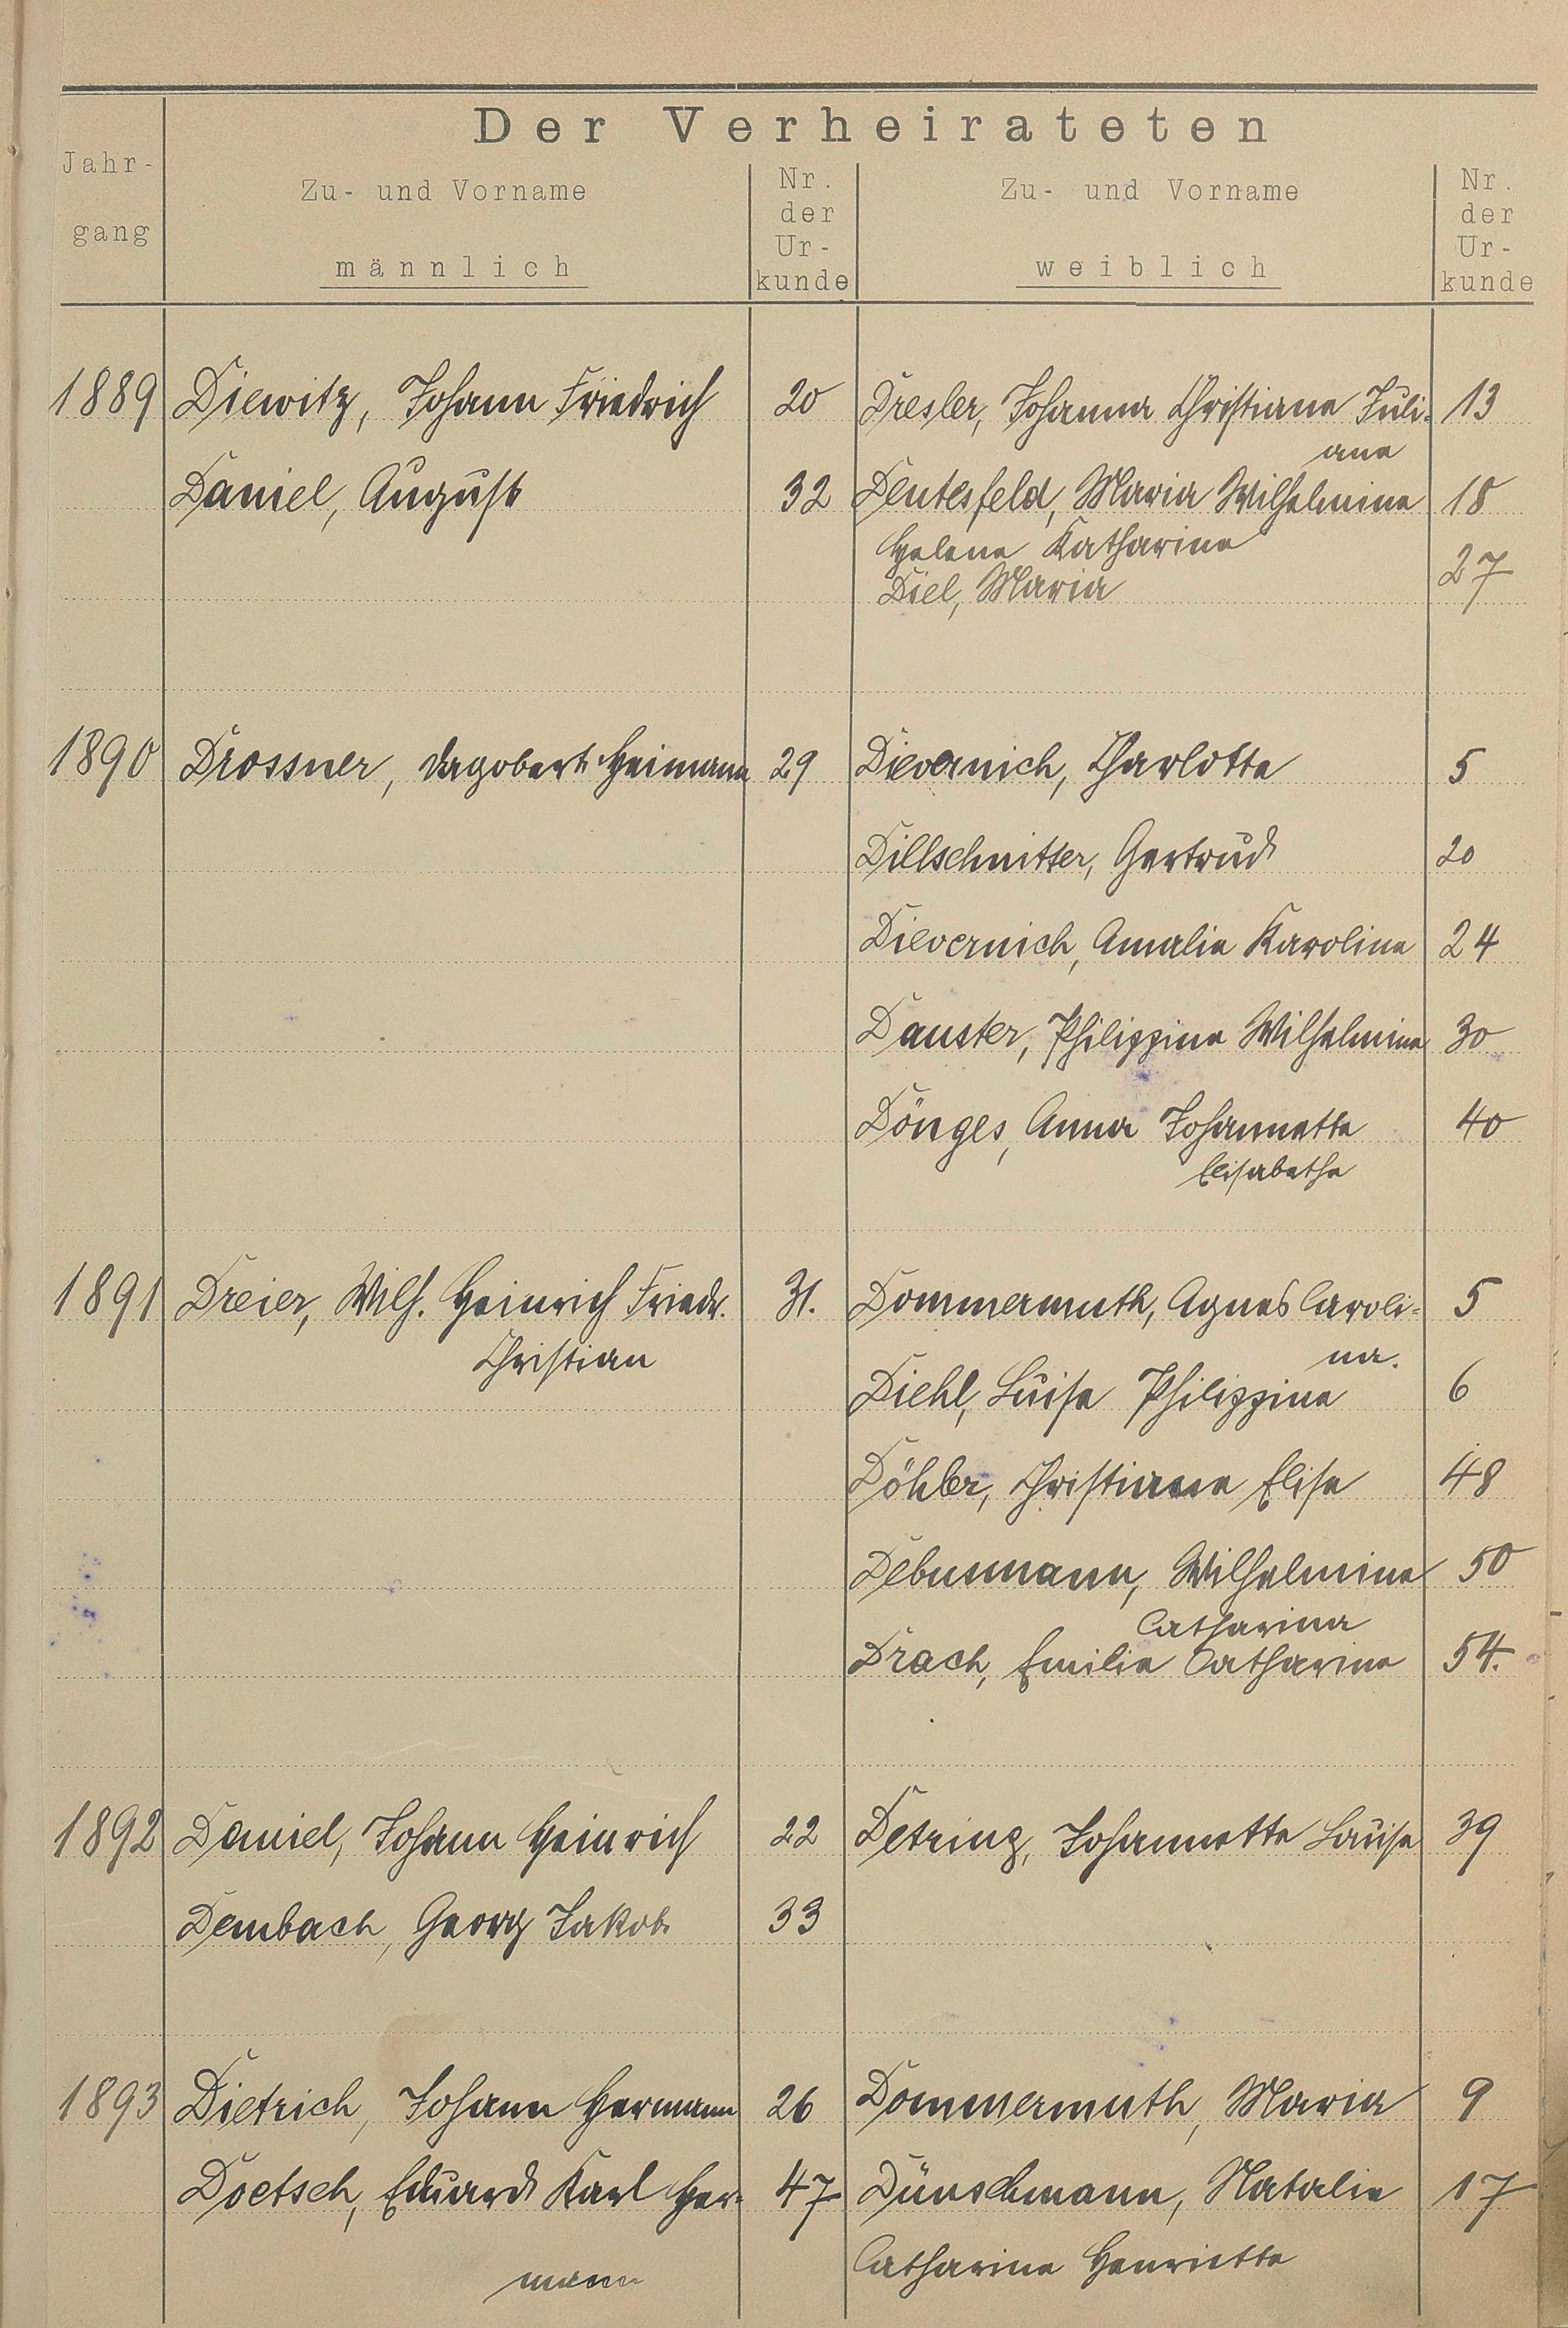 Der Verheirateten
Jahr-
gang
Zu- und Vorname
männlich
Nr.
der
Ur-
kunde
Zu- und Vorname
weiblich
Nr.
der
Ur-
kunde
1889 Diewitz, Johann Friedrich 20 Dresler, Johanna Christiane Juli- 13
ane
Daniel, August 32 Dentesfeld, Maria Wilhelmine 18
Helene Katharine
Diel, Maria 27
1890 Drossner, Dagobert Heimann 29 Dievernich, Charlotte 5
Dillschnitter, Gertrud 20
Dievernich, Amalie Karoline 24
Dauster, Philippine Wilhelmine 30
Dönges, Anna Johannette 40
Elisabetha
1891 Dreier, Wilh. Heinrich Friedr. 31. Dommermuth, Agnes Caroli= 5
Christian
na.
Diehl, Luise Philippine 6
Döhler, Christiane Elise 48
Debusmann, Wilhelmine 50
Catharina
Drach, Emilie Catharine 54.
1892 Daniel, Johann Heinrich 22 Detring, Johannette Louise 39
Dembach, Georg Jakob 33
1893 Dietrich, Johann Hermann 26 Dommermuth, Maria 9
Doetsch, Eduard Karl Her= 47 Dünschmann, Natalie 17
mann
Catharine Henriette